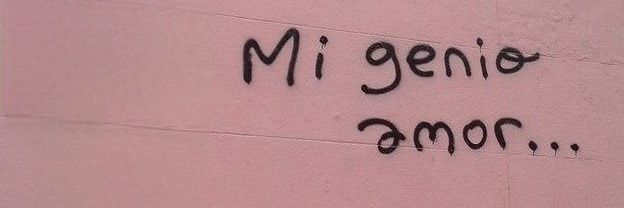 Mi genio
amor...